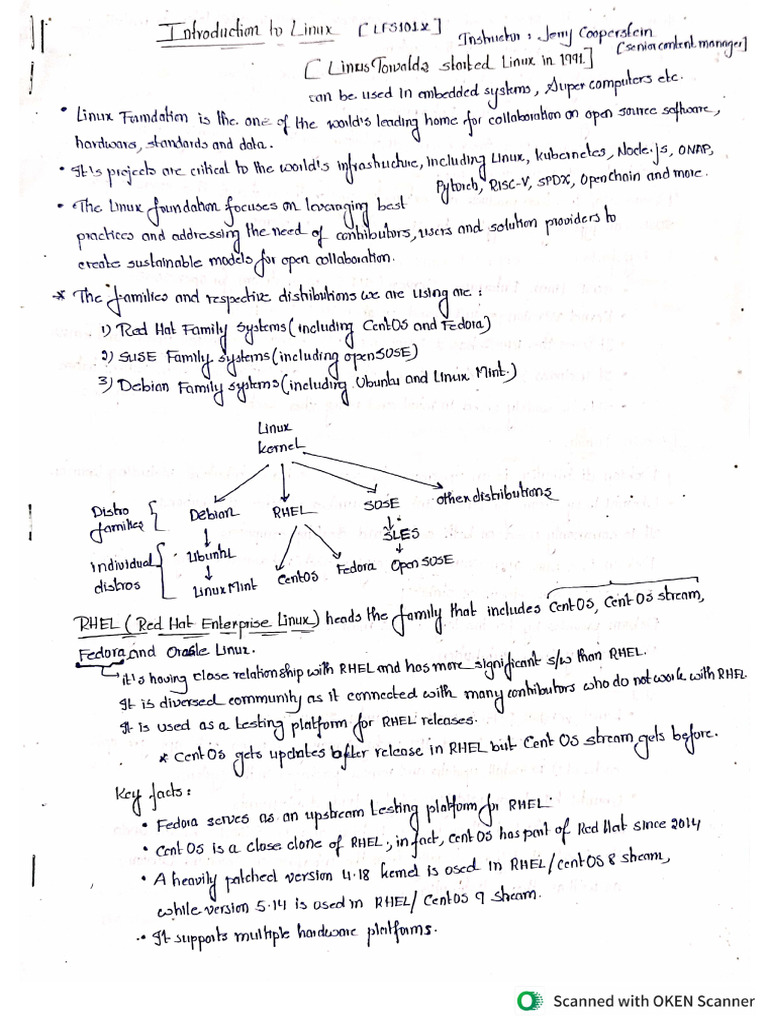 Introduction to Linux [LFS101x]
Instructor : Jerry Cooperstein
[senior content manager]
[Linus Torvalds started Linux in 1991.]
can be used in embedded systems, super computers etc.
• Linux Foundation is the one of the world's leading home for collaboration on open source software,
hardware, standards and data.
• It's projects are critical to the world's infrastructure, including Linux, Kubernetes, Node.js, ONAP,
Pytorch, RISC-V, SPDX, OpenChain and more.
• The Linux foundation focuses on leveraging best
practices and addressing the need of contributors, users and solution providers to
create sustainable models for open collaboration.
* The families and respective distributions we are using are :
1) Red Hat Family Systems (including CentOS and Fedora)
2) SUSE Family systems (including openSUSE)
3) Debian Family systems (including Ubuntu and Linux Mint.)
Linux
kernel
Distro
families
Debian RHEL SUSE other distributions
SLES
Individual
distros
Ubuntu
Linux Mint CentOS Fedora Open SUSE
RHEL (Red Hat Enterprise Linux) heads the family that includes CentOS, CentOS stream,
Fedora and Oracle Linux.
it's having close relationship with RHEL and has more significant s/w than RHEL.
It is diversed community as it connected with many contributors who do not work with RHEL.
It is used as a testing platform for RHEL releases.
* CentOS gets updates after release in RHEL but Cent OS stream gets before.
Key facts :
• Fedora serves as an upstream testing platform for RHEL.
• CentOS is a close clone of RHEL, in fact, centOS has part of Red Hat since 2014
• A heavily patched version 4.18 kernel is used in RHEL/centOS 8 stream,
while version 5.14 is used in RHEL/ CentOS 9 stream.
• It supports multiple hardware platforms.
Scanned with OKEN Scanner